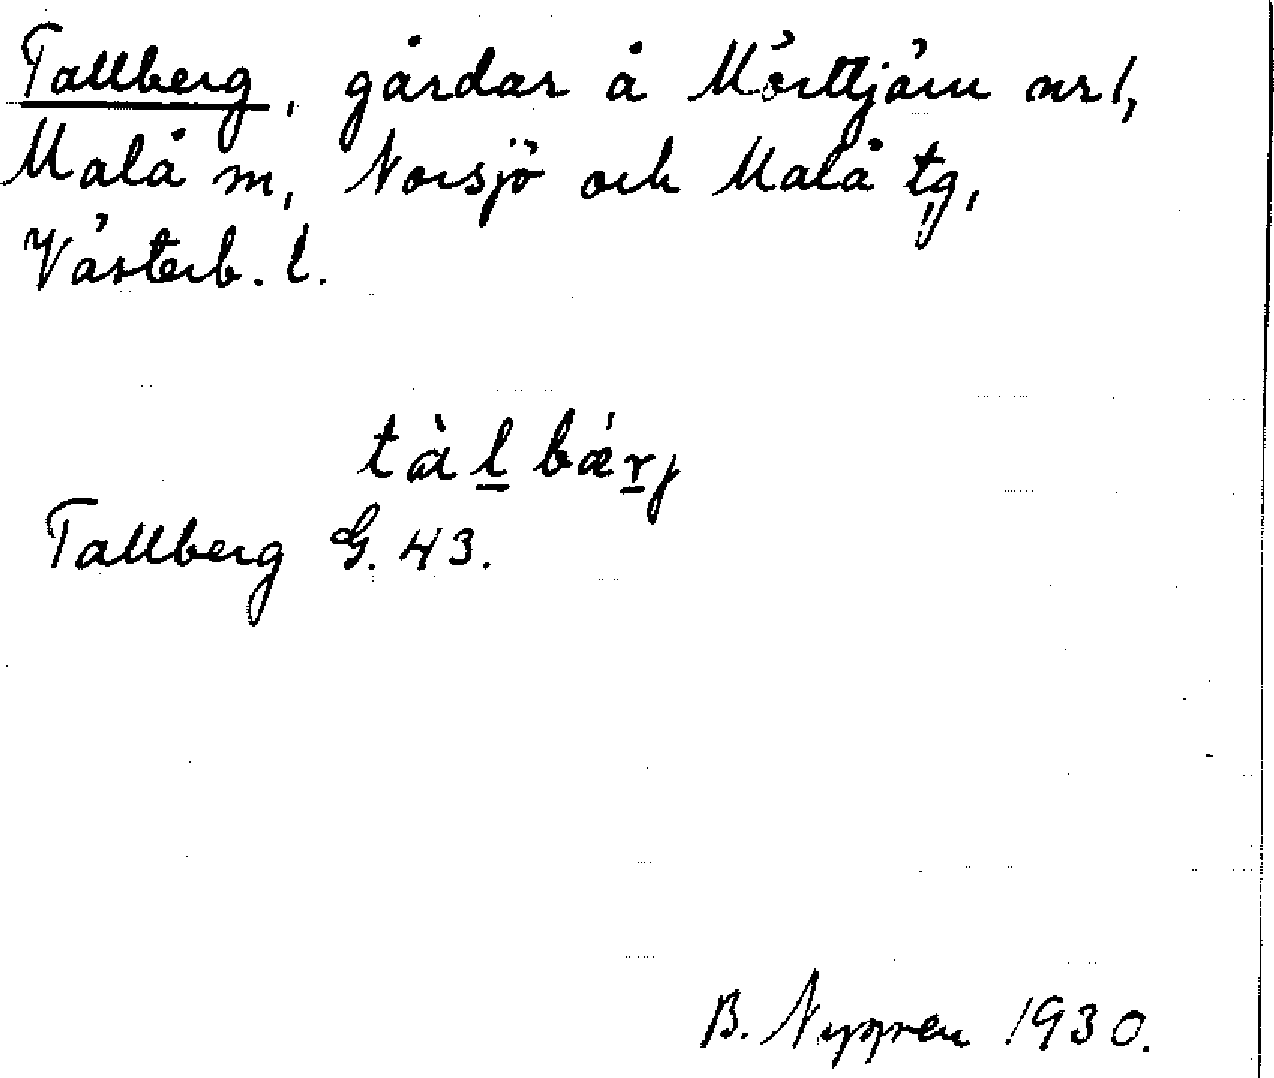 Tallberg, gårdar å Mörttjärn nr 1,
Malå sn, Norsjö och Malå tg,
Västerb. l.
tàl̲bǽr̲j
Tallberg G. 43.
B. 1930.